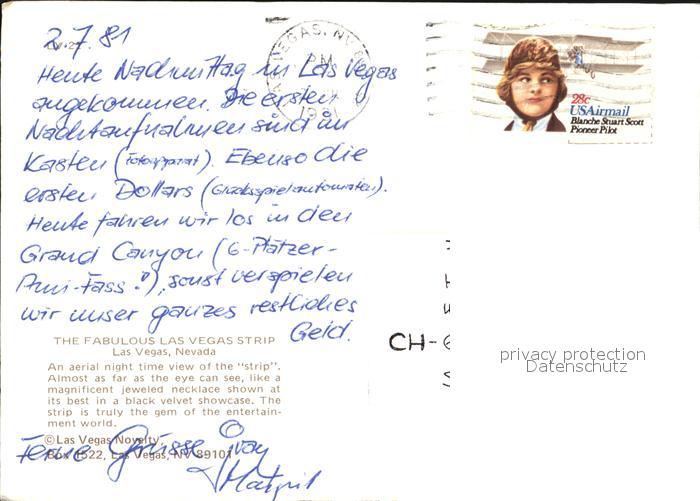 2.7.81
Heute Nachmittag in Las Vegas
angekommen. Die ersten
Nachtaufnahmen sind im
Kasten (Fotoapparat). Ebenso die
ersten Dollars (Glücksspielautomaten).
Heute fahren wir los in den
Grand Canyon (6-Plätzer-
Ami-Fass!), sonst verspielen
wir unser ganzes restliches
Geld.
THE FABULOUS LAS VEGAS STRIP
Las Vegas, Nevada
An aerial night time view of the "strip".
Almost as far as the eye can see, like a
magnificent jeweled necklace shown at
its best in a black velvet showcase. The
strip is truly the gem of the entertain-
ment world.
©Las Vegas Novelty,
Box 1522, Las Vegas, NV 89101
Ferne Grüsse
VEGAS, NV
PM
1981
28c
USAirmail
Blanche Stuart Scott
Pioneer Pilot
CH-
privacy protection
Datenschutz